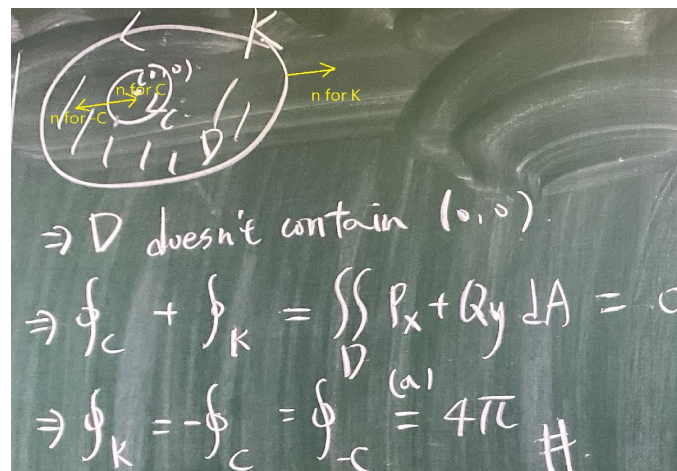 K
(0,0)
n for C
n for K
n for -C
C
D
⇒ D doesn't contain (0,0)
⇒ ∮_C + ∮_K = ∬_D P_x + Q_y dA = 0
⇒ ∮_K = -∮_C = ∮_{-C} (a)= 4π #